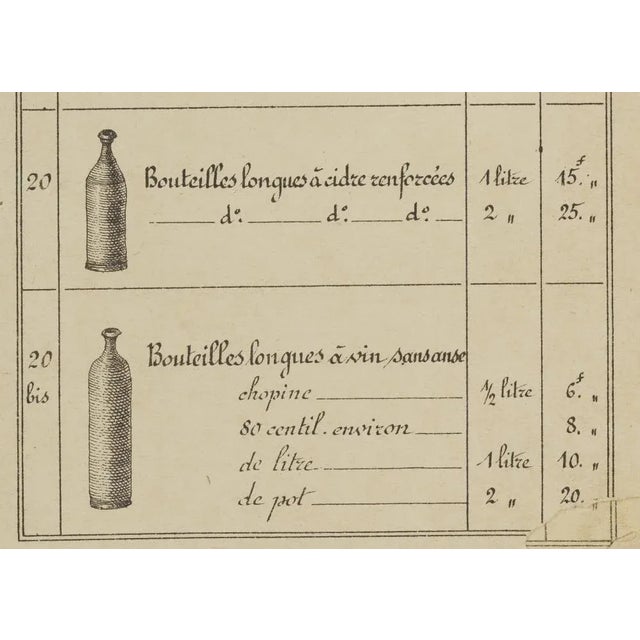 20 Bouteilles longues à cidre renforcées 1 litre 15.f "
d°. d°. d°. 2 " 25. "
20 bis Bouteilles longues à vin sans anse
chopine 1/2 litre 6.f "
80 centil. environ 8. "
de litre 1 litre 10. "
de pot 2 " 20. "